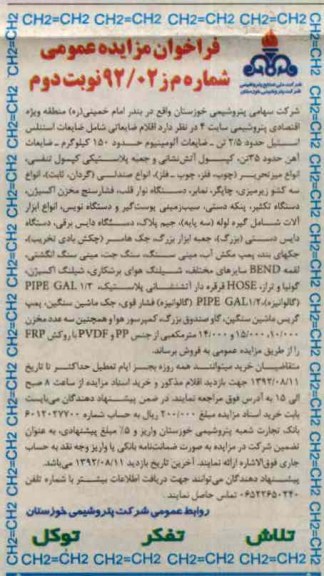 CH2=CH2 CH2=CH2 CH2=CH2 CH2=CH2 CH2=CH2
فراخوان مزایده عمومی
شماره م ز ۹۲/۰۲ نوبت دوم
شرکت سهامی پتروشیمی خوزستان واقع در بندر امام خمینی(ره) منطقه ویژه
اقتصادی پتروشیمی سایت ۴ در نظر دارد اقلام ضایعاتی شامل ضایعات استنلس
استیل حدود ۲/۵ تن ـ ضایعات آلومینیوم حدود ۱۵۰ کیلوگرم ـ ضایعات
آهن حدود ۳۵تن، کپسول آتش‌نشانی و جعبه پلاستیکی کپسول تنفسی،
انواع میزتحریر (چوب ـ فلز، چوب ـ فلز)، انواع صندلی (گردان، ثابت)، انواع
سه کشو زیرمیزی، چاپگر، نمابر، دستگاه نوار قلب، فشارسنج مخزن اکسیژن،
دستگاه تکثیر، پنکه دستی، سیب‌زمینی پوست‌گیر و دستگاه نویس، انواع ابزار
آلات شامل گیره لوله (سه پایه)، جیم پلاک، دستگاه دایس برقی، دستگاه
دایس دستی (بزرگ)، جعبه ابزار بزرگ، جک هامر (چکش بادی تخریب)،
چکهای بند، پمپ مکش آب، مینی سنگ، سنگ جت، مینی سنگ انگشتی،
لقمه BEND سایزهای مختلف، شیلنگ هوای برشکاری، شیلنگ اکسیژن،
گونیا و تراز، HOSE قرقره دار آتشنشانی پلاستیک، PIPE GAL ۱/۳
(گالوانیزه)، PIPE GAL۱/۲ (گالوانیزه) فشار قوی، جک ماشین سنگین، پمپ
گریس ماشین سنگین، گاو صندوق بزرگ، کمپرسور هوا و همچنین سه عدد مخزن
۱۰/۰۰۰، ۱۵/۰۰۰ و ۱۴/۰۰۰ مترمکعبی از جنس PP و PVDF با روکش FRP
را از طریق مزایده عمومی به فروش برساند.
متقاضیان خرید میتوانند همه روزه بجز ایام تعطیل حداکثر تا تاریخ
۱۳۹۲/۰۸/۱۱ جهت بازدید اقلام مذکور و خرید اسناد مزایده از ساعت ۸ صبح
الی ۱۵ به آدرس فوق مراجعه نمایند. در ضمن پیشنهاد دهندگان می‌بایست
بابت خرید اسناد مزایده مبلغ ۲۰۰/۰۰۰ ریال به حساب شماره ۶۰۱۲۰۲۷۷۰۰
بانک تجارت شعبه پتروشیمی خوزستان واریز و ۵٪ مبلغ پیشنهادی، به عنوان
تضمین شرکت در مزایده به صورت ضمانتنامه بانکی یا واریز وجه نقد به حساب
جاری فوق‌الاشاره ارائه نمایند. آخرین تاریخ بازدید ۱۳۹۲/۰۸/۱۱ می‌باشد.
پیشنهاد دهندگان می‌توانند جهت دریافت اطلاعات بیشتر با شماره تلفن
۰۶۵۲۲۶۵۰۲۴۰ تماس حاصل نمایند.
روابط عمومی شرکت پتروشیمی خوزستان
تلاش تفکر توکل
CH2=CH2 CH2=CH2 CH2=CH2 CH2=CH2 CH2=CH2